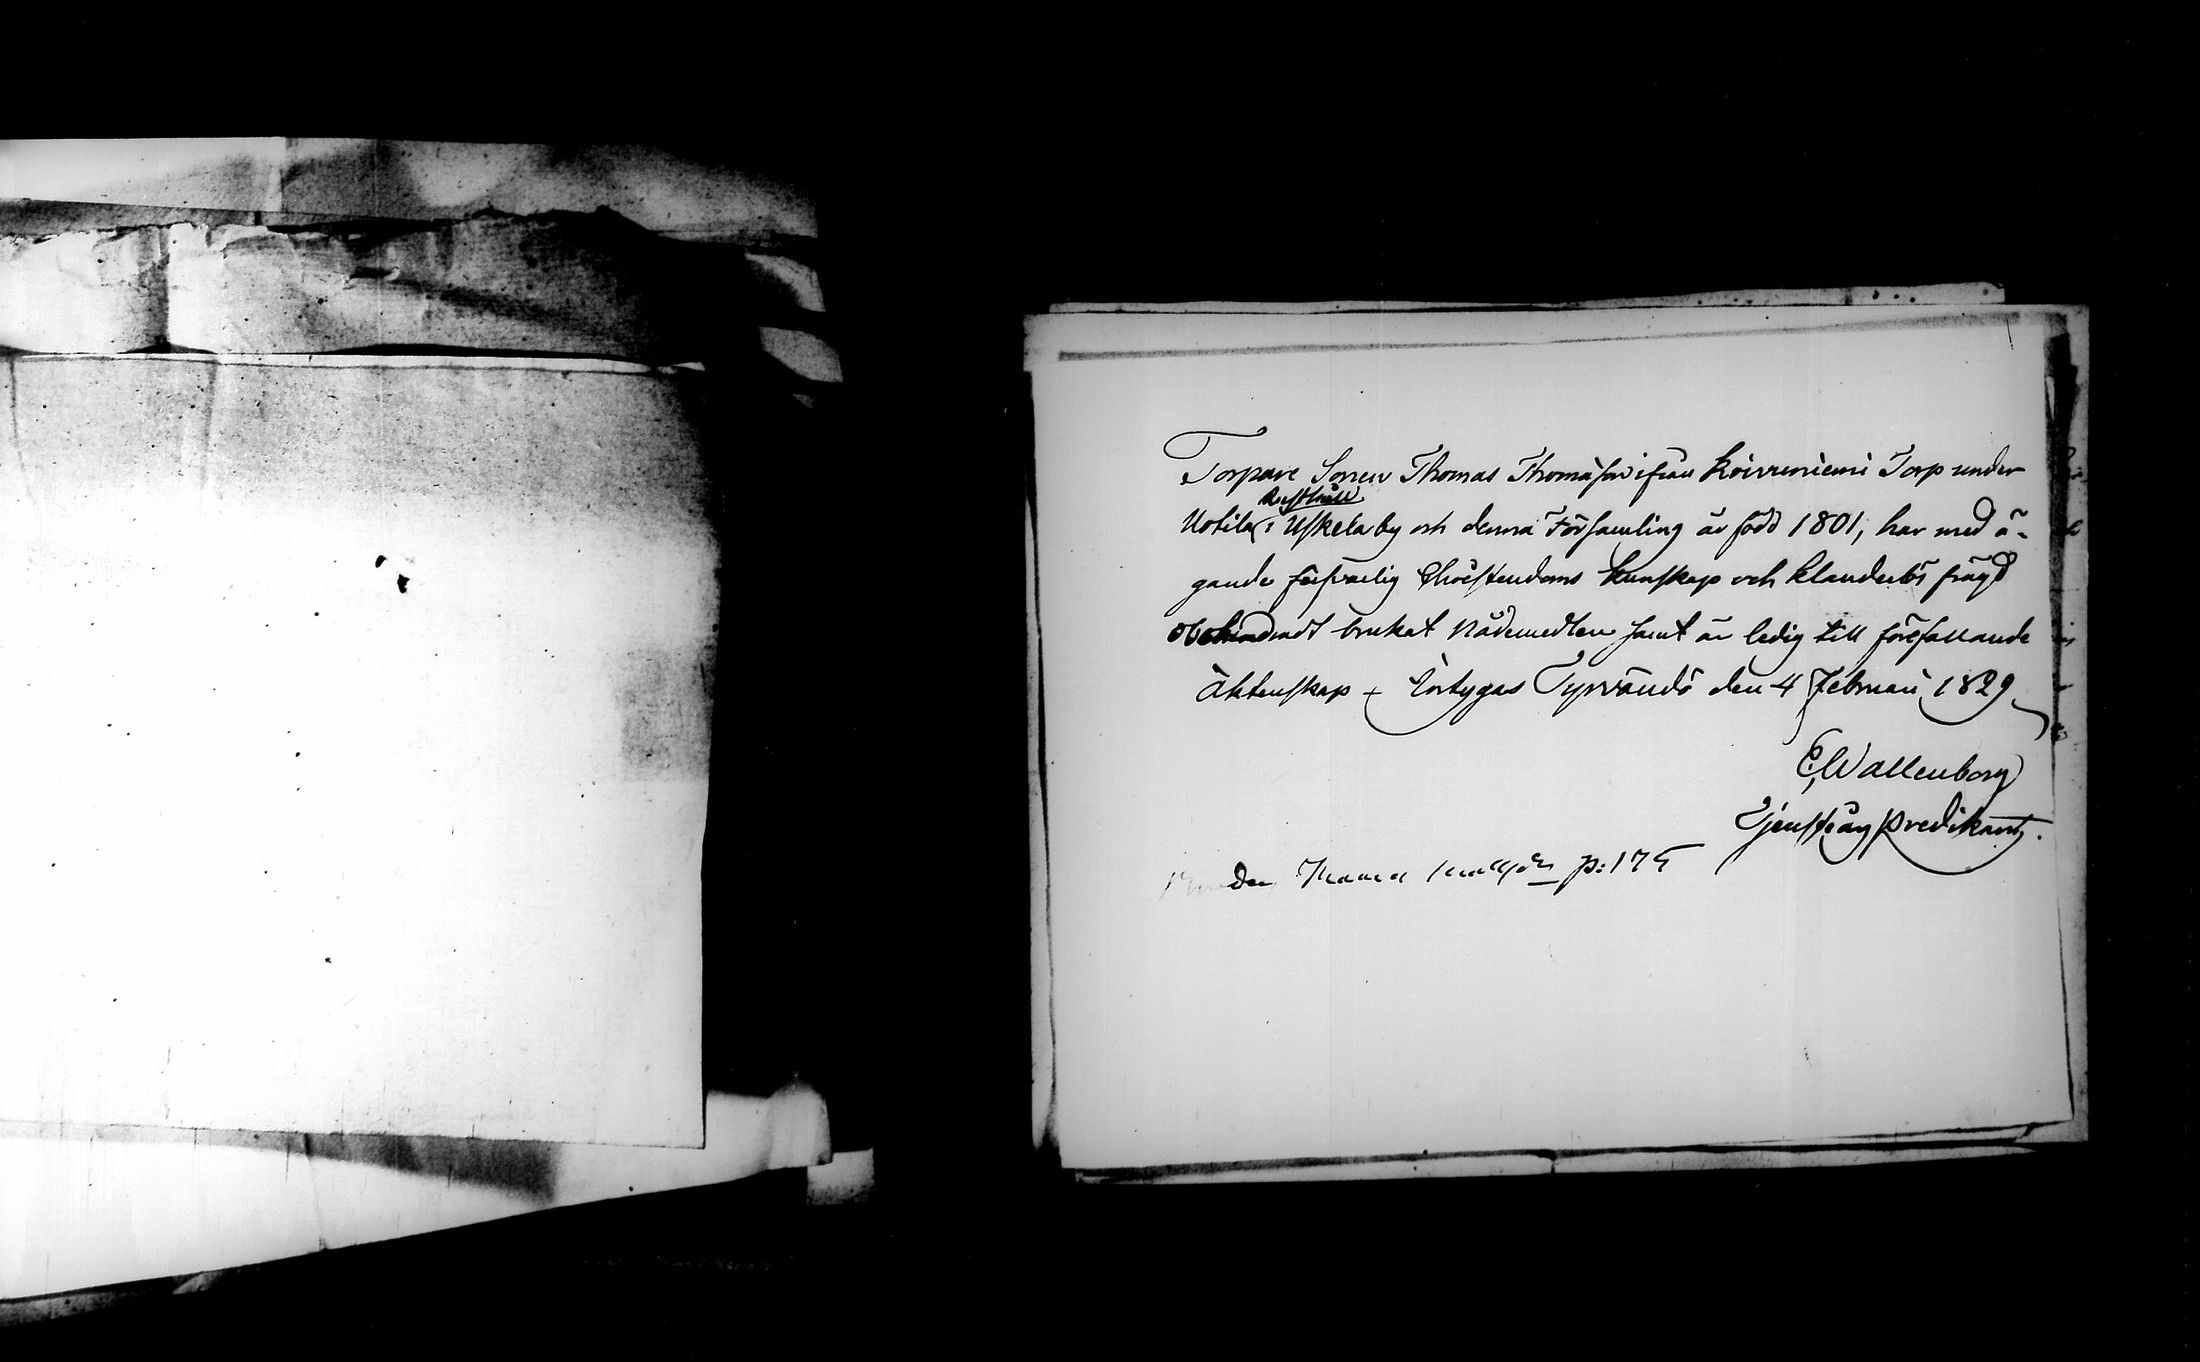 Torpare Sonen Thomas Thomasson ifrån Koivuniemi Torp under
Rusthåll
Uotila i Uskela by och denna Församling är född 1801, har med ä-
gande försvarlig Christendoms kunskap och klanderlös frägd
obehindradt brukat Nådemedlen samt är ledig till förefallande
Äktenskap, Intygas Tyrvändö den 4 Februari 1829
C. Wallenborg
Tjenstg. Predikant.
p: 175